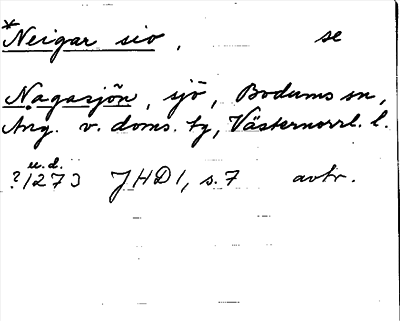 *Neigar sio, se
Nagasjön, sjö, Bodums sn,
Ång. v. doms. tg, Västernorrl. l.
u.d.
?1273 JHD 1, s. 7 avtr.